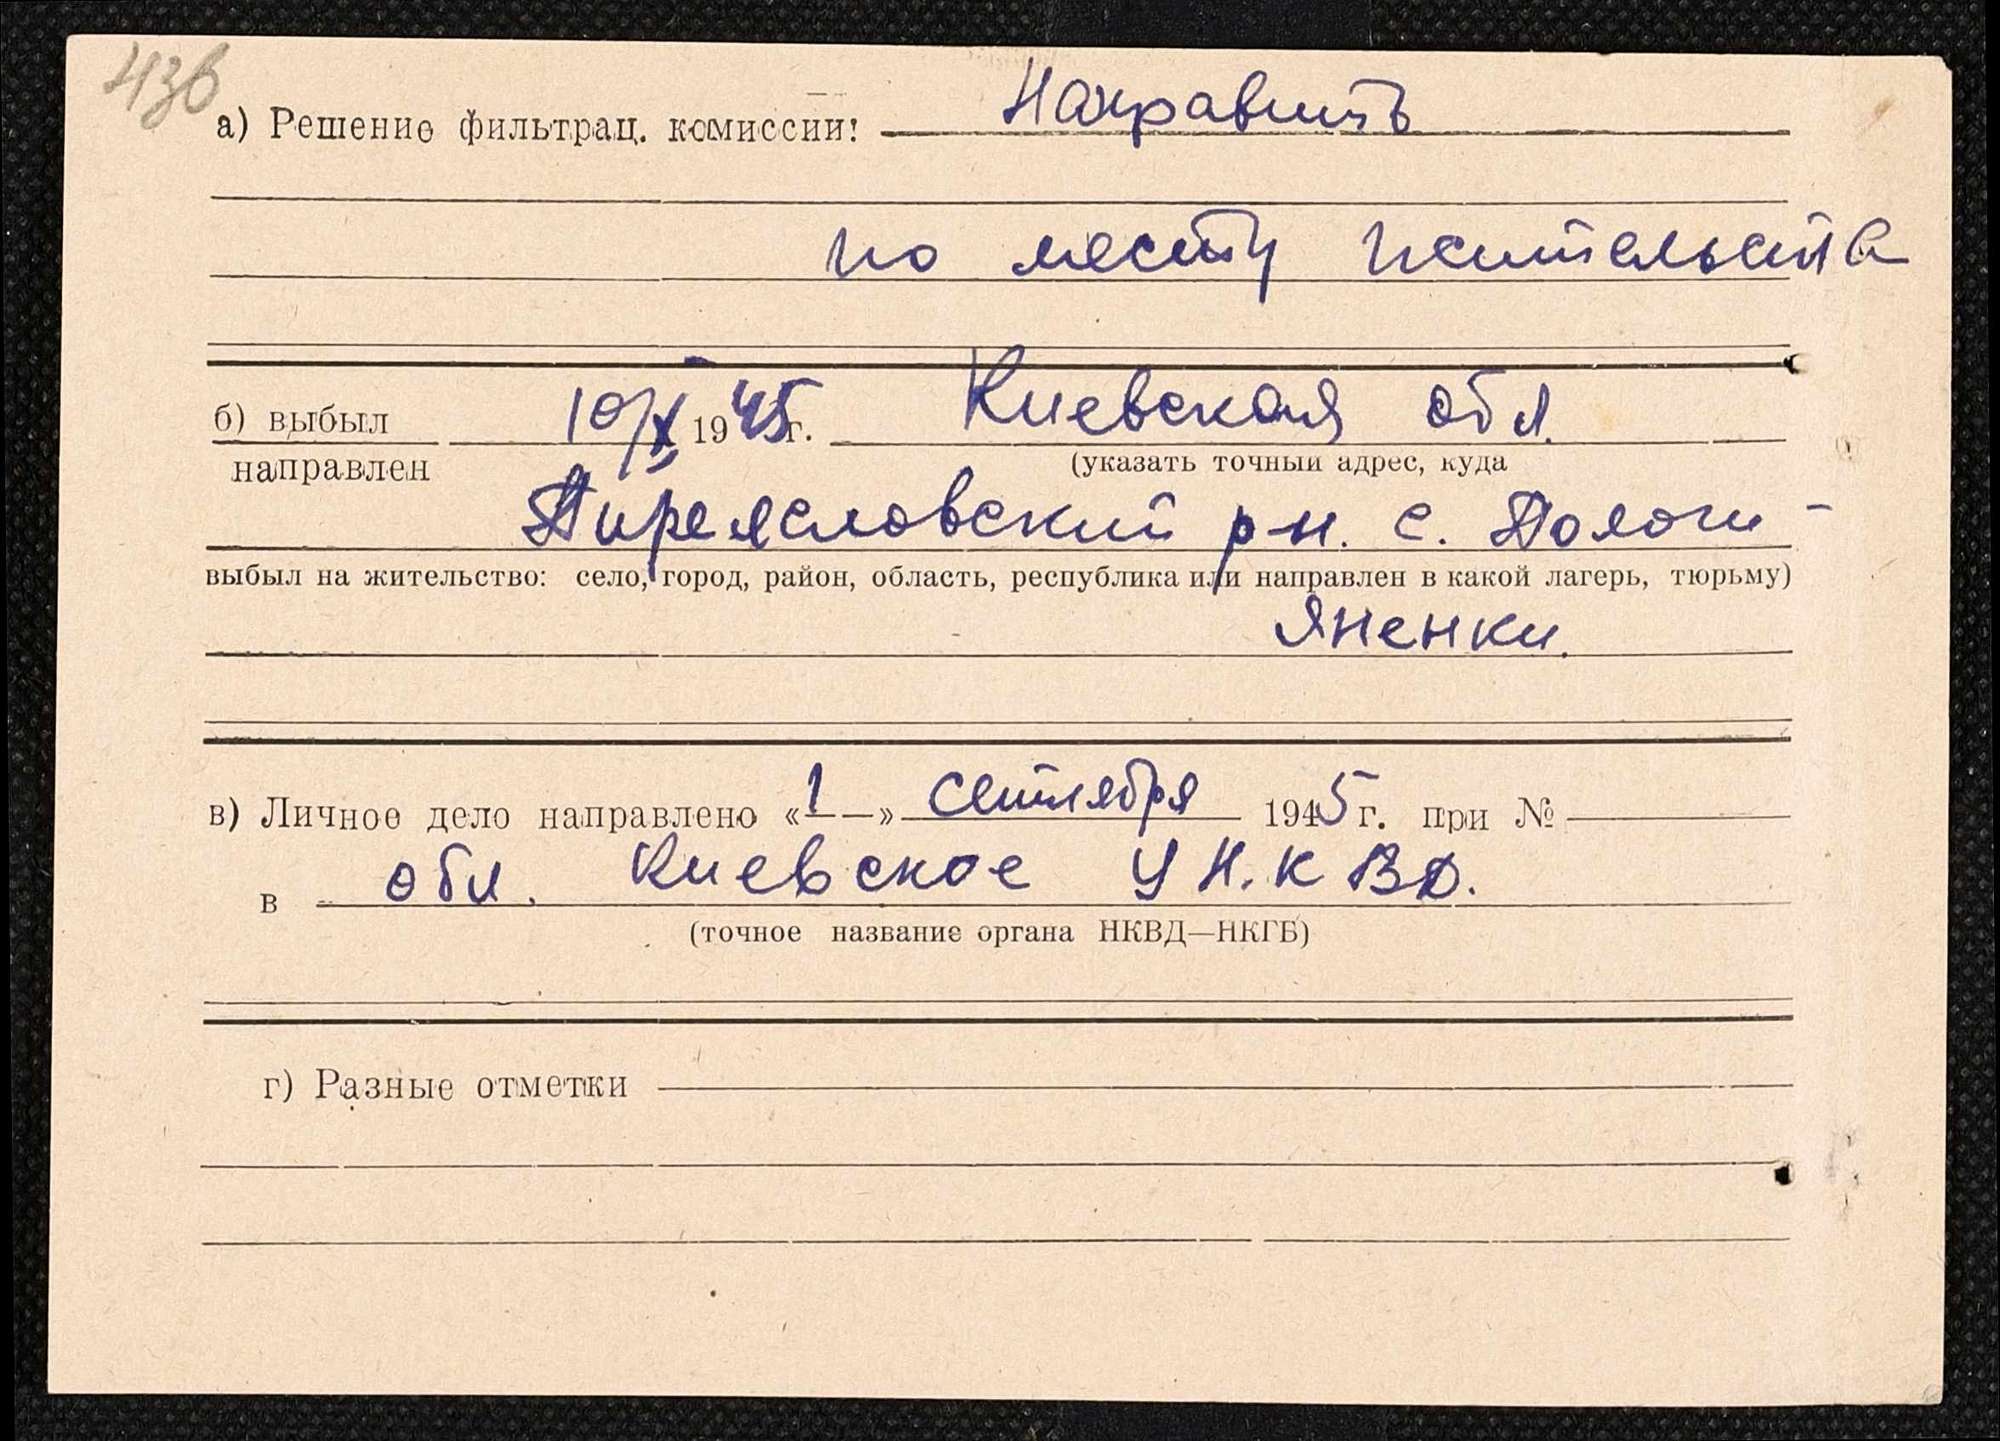 436
а) Решение фильтрац. комиссии: Направить
по месту жительства
б) выбыл 10/X 1945 г. Киевская обл.
направлен
(указать точный адрес, куда
Пиреясловский р-н. с. Пологи -
выбыл на жительство: село, город, район, область, республика или направлен в какой лагерь, тюрьму)
Яненки.
в) Личное дело направлено «1—» сентября 1945 г. при №
в обл. Киевское УН.КВД.
(точное название органа НКВД—НКГБ)
г) Разные отметки